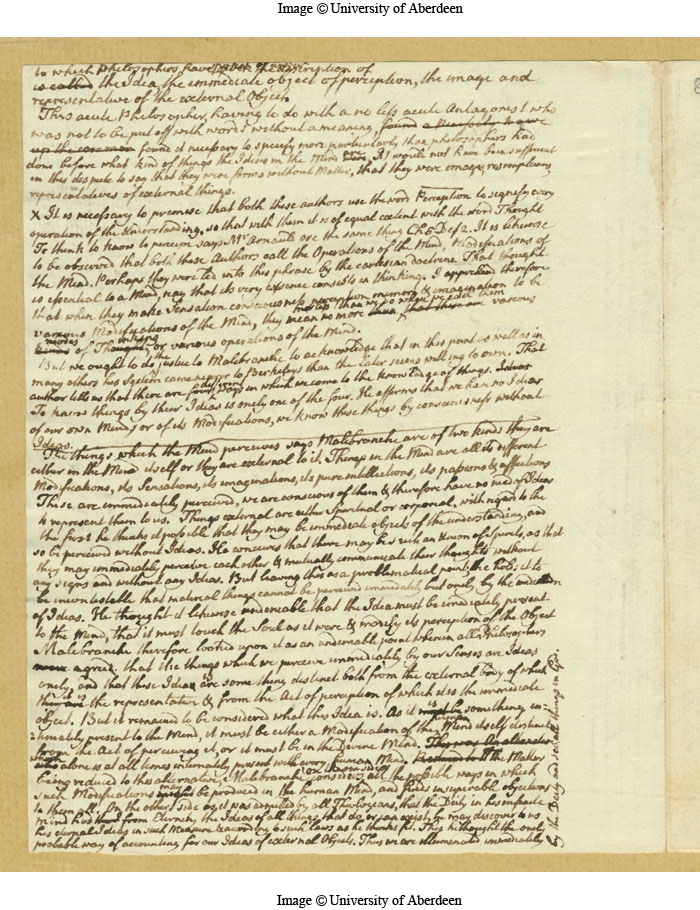 Image © University of Aberdeen
to which Philosophers have given the description of
is called the Idea, the immediate object of perception, the image and
representative of the external Object
This acute Philosopher, having to do with a no less acute Antagonist who
was not to be put off with words without a meaning, found
up the common found it necessary to specify more particularly than philosophers had
done before what kind of things the Ideas in the Mind were. It would not have been sufficient
in this dispute to say that they were forms without Matter, that they were images, resemblances
representatives of external things.
X It is necessary to premise that both these authors use the word Perception to signify every
operation of the Understanding, so that with them it is of equal extent with the word Thought
To think to know to perceive says Mr Arnauld are the same thing Ch 5 Def 2. It is likewise
to be observed that both these Authors call the Operations of the Mind, Modifications of
the Mind. Perhaps they were led into this phrase by the cartesian doctrine That thought
is essential to a Mind, nay that its very essence consists in thinking. I apprehend therefore
that when they make Sensation consciousness perception memory & imagination to be
various Modifications of the Mind, they mean no more than that these are various
modes of Thought, or various operations of the Mind.
But we ought to do the justice to Malebranche to acknowledge that in this point as well as in
many others his System came nearer to Berkeleys than the later seems willing to own. That
author tells us that there are four different ways in which we come to the knowledge of things.
To know things by their Ideas is onely one of the four. He affirms that we have no Ideas
of our own Minds or of its Modifications, we know these things by consciousness without
Ideas.
The things which the Mind perceives says Malebranche are of two kinds they are
either in the Mind itself or they are external to it. Things in the Mind are all its different
Modifications, its Sensations, its imaginations, its pure intellections, its passions & affections
These are immediately perceived, we are conscious of them & therefore have no need of Ideas
to represent them to us. Things external are either Spiritual or corporeal. With regard to the
first he thinks it possible that they may be immediate objects of the understanding, and
so be perceived without Ideas. He conceives that there may be such an Union of Spirits, as that
they may immediately perceive each other & mutually communicate their thoughts without
any signs and without any Ideas. But leaving this as a problematical point, he holds it to
be incontestable that material things cannot be perceived immediately but onely by the mediation
of Ideas. He thought it likewise undeniable that the Idea must be immediately present
to the Mind, that it must touch the Soul as it were & modify its perception of the Object
Malebranche therefore looked upon it as an undeniable point wherein all Philosophers
were agreed. that the things which we perceive immediately by our Senses are Ideas
onely, and that these Ideas are some thing distinct both from the external body of which
they are the representative & from the Act of perception of which it is the immediate
object. But it remained to be considered what this Idea is. As it is something in-
timately present to the Mind, it must be either a Modification of the human Mind itself distinct
from the Act of perceiving it, or it must be in the Devine Mind.
who alone is at all times intimately present with every human Mind. The Maker
being reduced to this alternative, Malebranche considers all the possible ways in which
such Modifications may be produced in the human Mind, and finds insuperable objections
to them all. On the other side as it was admitted by all Theologians, that the Deity in his
mind had from Eternity, the Ideas of all things that do, or can exist, he may discover to us
his eternal Ideas in such Measure & according to such laws as he thinks fit. This he thought the only
probable way of accounting for our Ideas of external Objects. Thus we are illuminated immediately
by the Deity and see all things in God.
Image © University of Aberdeen